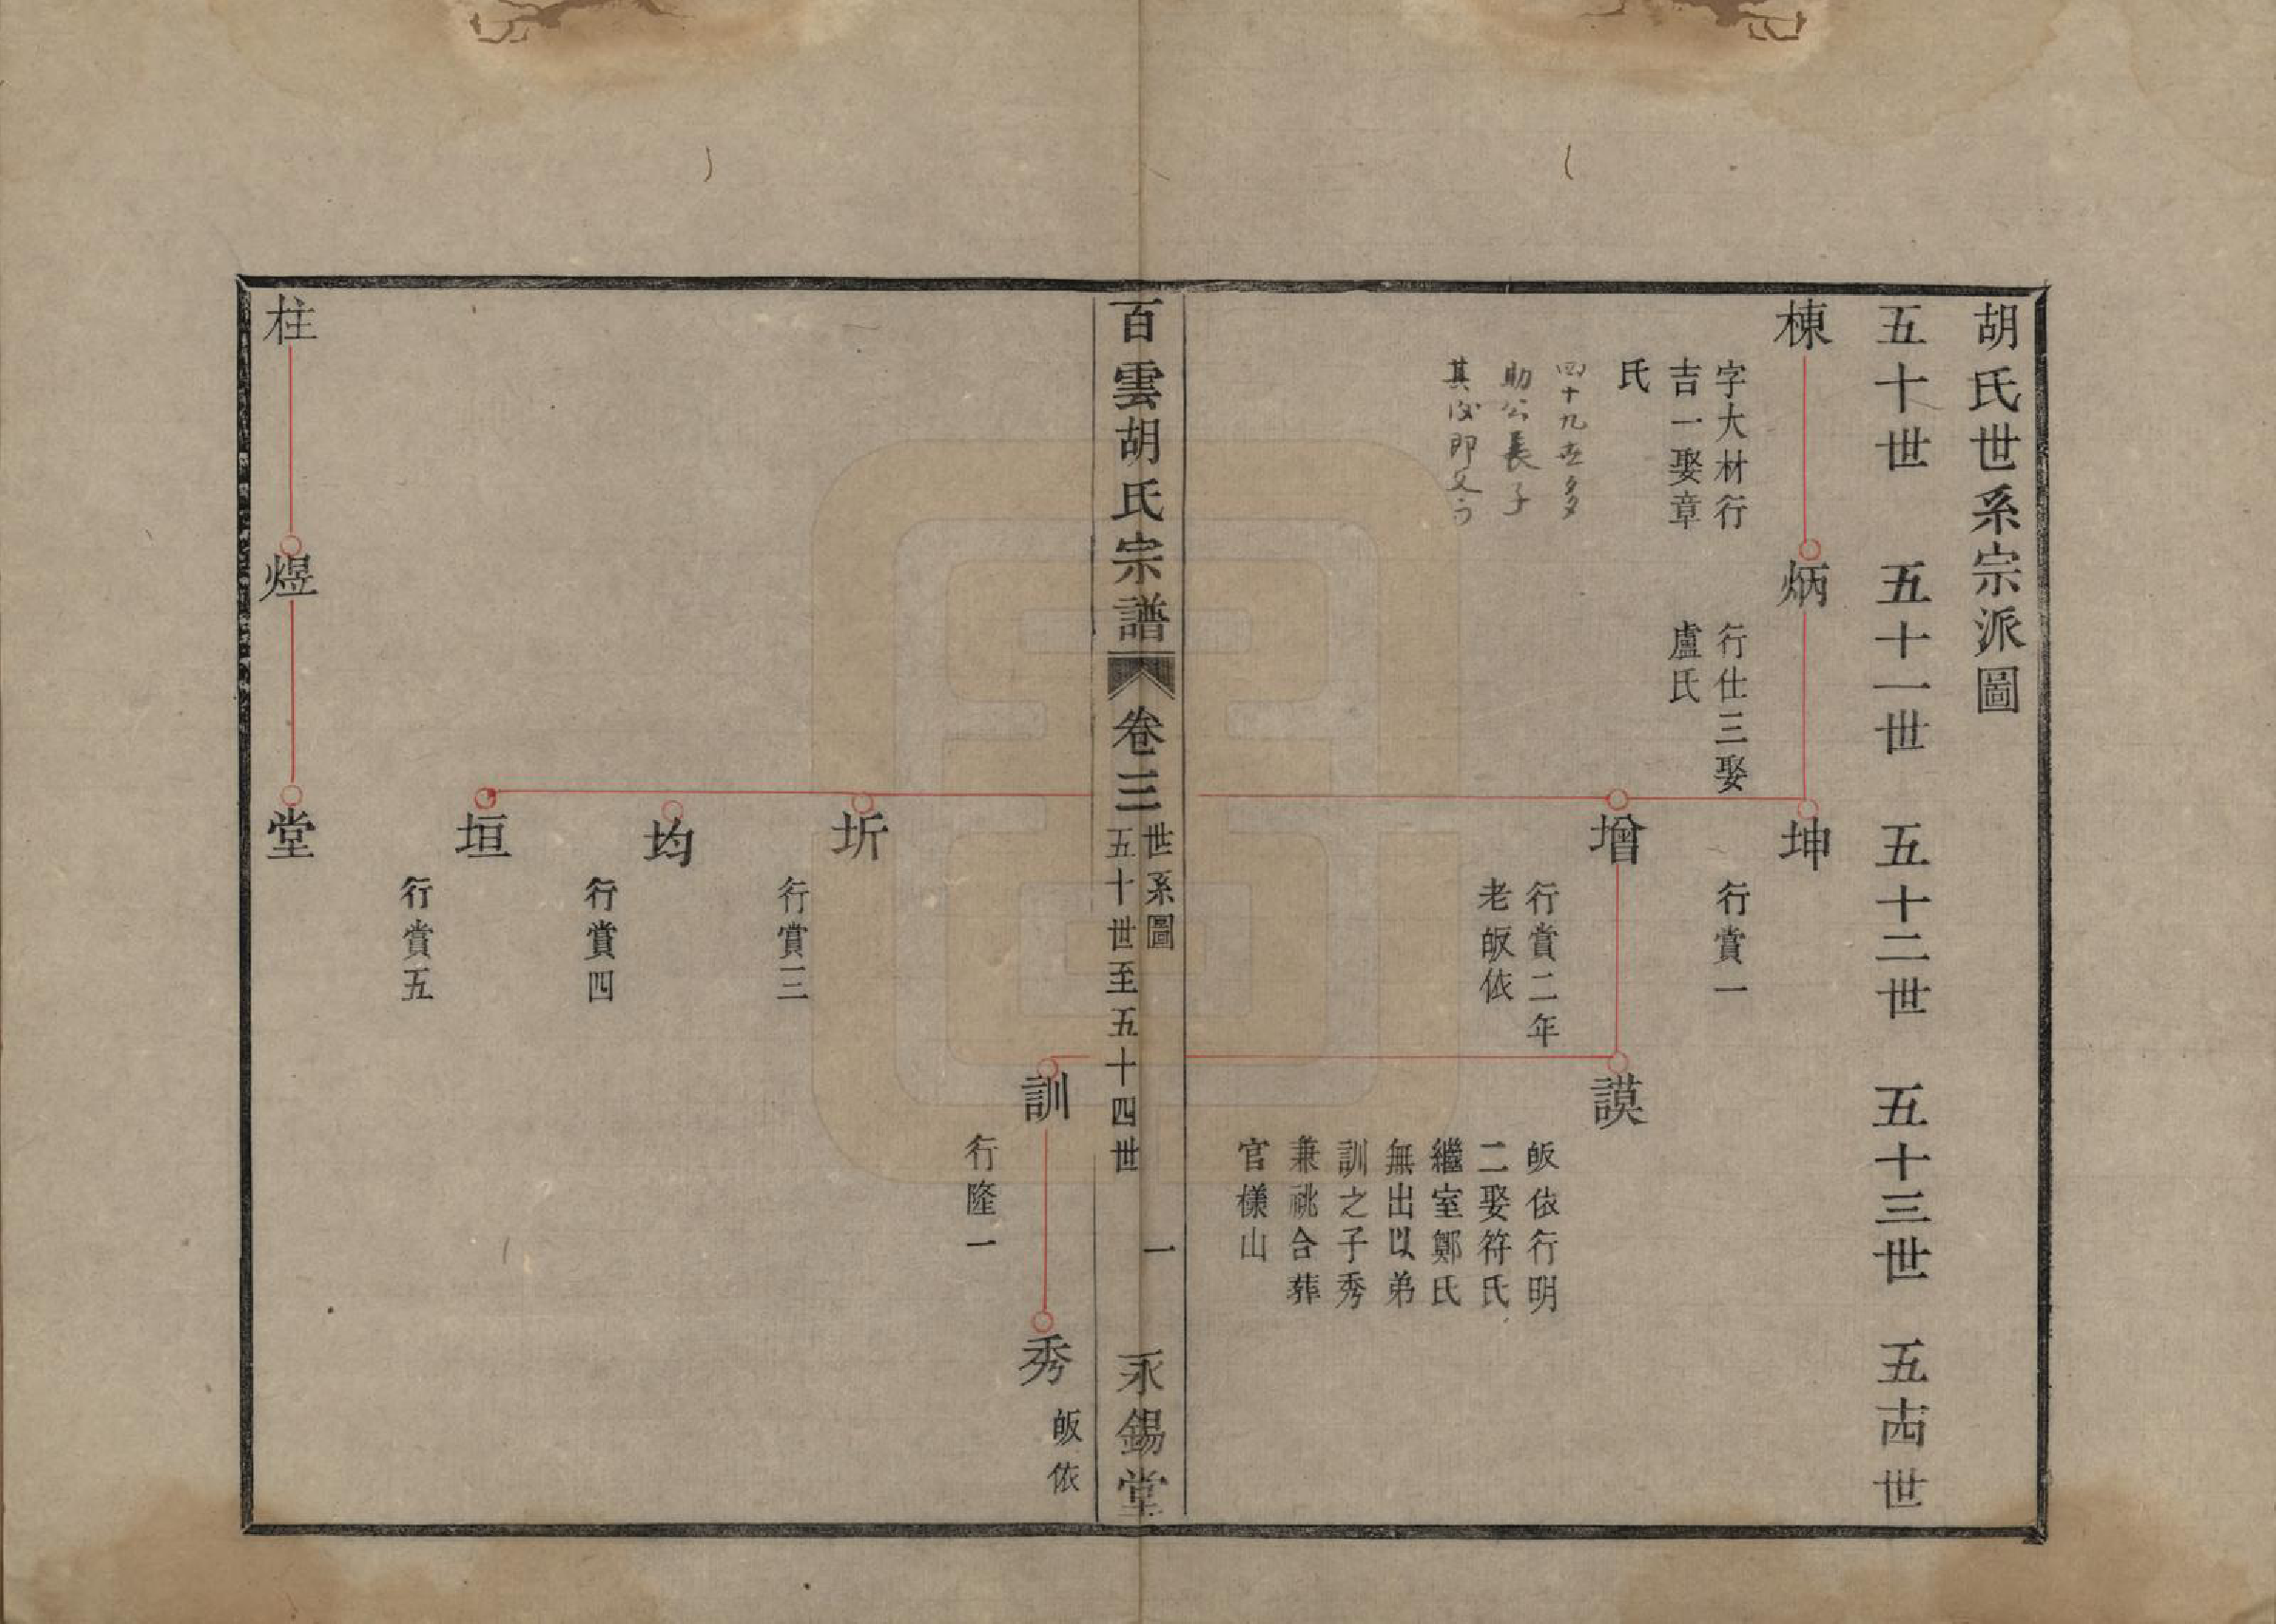 胡氏世系宗派圖
五十世
五十一世
五十二世
五十三世
五十四世
棟
字大材行
吉一娶章
氏
四十九世多
助公長子
炳
行仕三娶
盧氏
坤
行賞一
增
行賞二年
老皈依
謨
皈依行明
二娶符氏
繼室鄭氏
無出以弟
訓之子秀
兼祧合葬
官樣山
百雲胡氏宗譜
卷三
世系圖
五十世至五十四世
一
永錫堂
訓
行隆一
秀
皈依
圻
行賞三
均
行賞四
垣
行賞五
柱
煜
堂